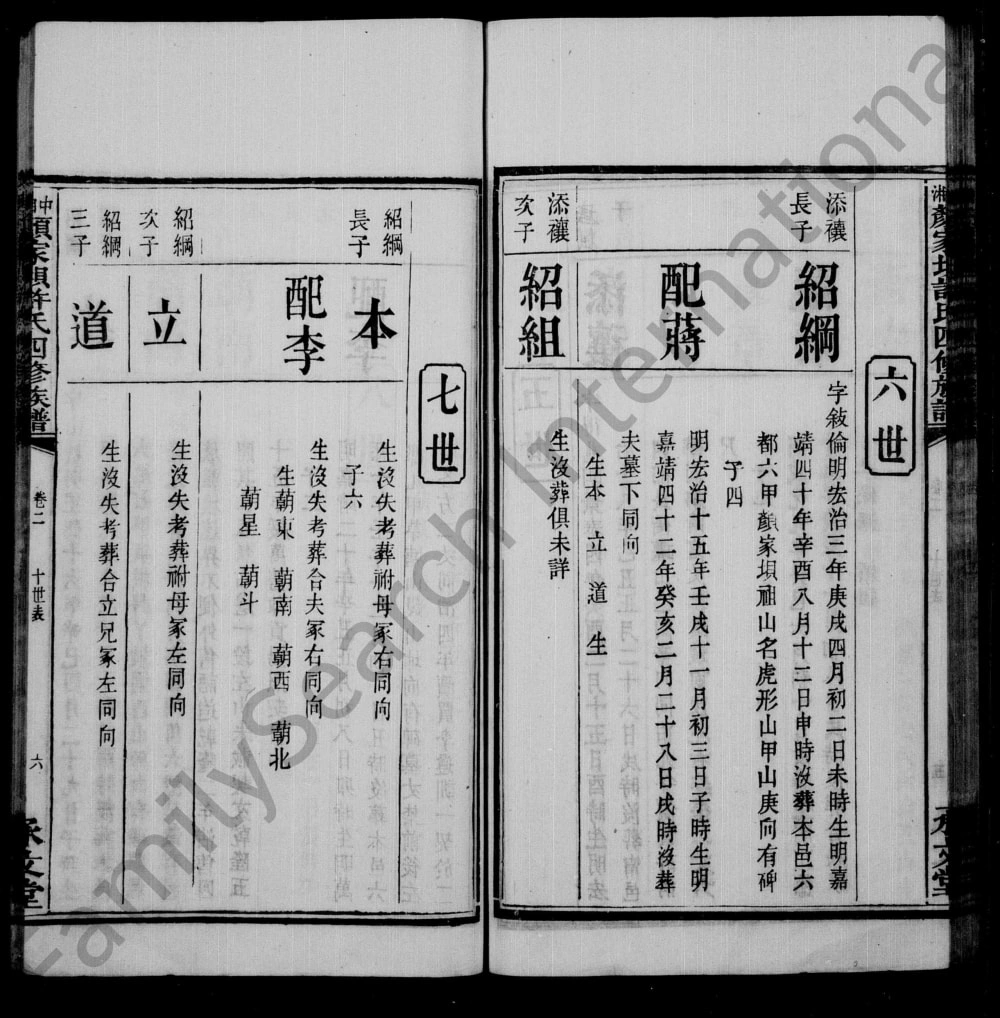 六世
添禳
長子
紹綱
字敍倫明宏治三年庚戌四月初二日未時生明嘉
靖四十年辛酉八月十三日申時沒葬本邑六
都六甲顏家垻祖山名虎形山甲山庚向有碑
子四
配蔣
明宏治十五年壬戌十一月初三日子時生明
嘉靖四十二年癸亥二月二十八日戌時沒葬
夫墓下同向
生本 立 道 生
添禳
次子
紹組
生沒葬俱未詳
七世
紹綱
長子
本
生沒失考葬祔母冢右同向
子六
配李
生沒失考葬合夫冢右同向
生朝東 朝南 朝西 朝北
朝星 朝斗
紹綱
次子
立
生沒失考葬祔母冢左同向
紹綱
三子
道
生沒失考葬合立兄冢左同向
家垻許氏四修族譜
卷二
十世表
六
FamilySearch International